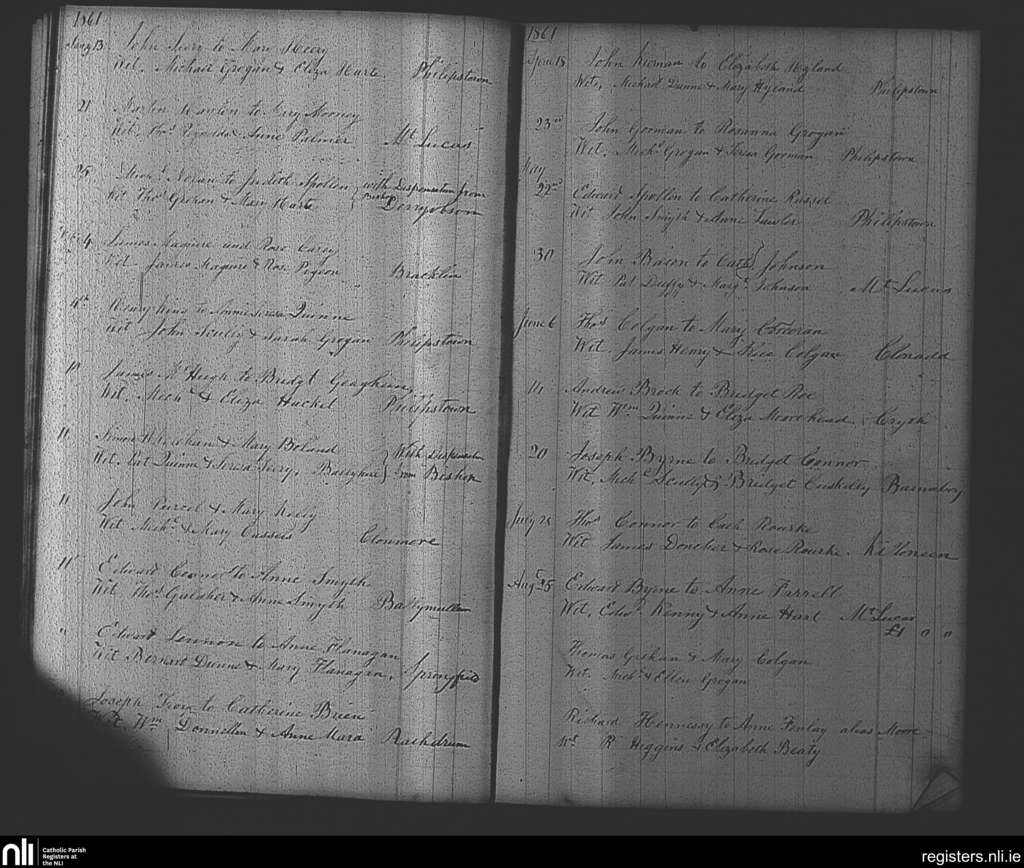 1861
Jany 13 John to Mary
Wit. Michael Grogan & Eliza Harte. Philipstown
21 Martin to Mooney
Wit. Thos Reynolds & Anne Palmer Mt Lucas
25 Nolan to Judith Spollen with Dispensation from
Wit Thos & Mary Harte Bishop Derrygobson
4 James Maguire and Rose Carey
Wit. James Maguire & Rose Bracklin
4th Henry King to Annie Teresa Quinne
Wit John Scully & Sarah Grogan Philipstown
10 James McHugh to Bridgt Geaghran
Wit. Mich & Eliza Hackel Philipstown
11 & Mary Boland With Dispensation
Wit. Pat Quinne & Teresa from Bishop
11 John Purcel & Mary
Wit Michl & Mary Clonmore
11 Edward Connor to Anne Smyth
Wit Thos & Anne Smyth Ballymullen
" Edward Lennon to Anne Flanagan
Wit Bernard Dunne & Mary Flanagan, Springfield
Joseph Troy to Catherine Brien
Wit. Wm Donnellan & Anne Mara Rashdrum
1861
April 18 John Kiernan to Elizabeth Hyland
Wit, Michael Dunne & Mary Hyland Philipstown
23rd John Gorman to Rosanna Grogan
Wit. Michl Grogan & Teresa Gorman Philipstown
May
22nd Edward Spollin to Catherine Russel
Wit John Smyth & Anne Lawlor Philipstown
30 John Bacon to Cath Johnson
Wit Pat Duffy & Margt Johnson Mt Lucas
June 6 Thos Colgan to Mary Corcoran
Wit. James Henry & Colgan Clonadd
14 Andrew Brock to Bridget Roe
Wit Wm Quinne & Eliza Moorehead.
20 Joseph Byrne to Bridget Connor
Wit, Michl Scully & Bridget Cuskelly
July 28 Thos Connor to Cath Rourke
Wit James Doneher & Rose Rourke. Killoneen
Augt 25 Edward Byrne to Anne Farrell
Wit, Edwd Kenny & Annie Hart Mt Lucas
£1 0 "
Thomas & Mary Colgan
Wit. Michl & Ellen Grogan
Richard Hennessy to Anne Finlay alias Moore
Wt R Heggins & Elizabeth Beaty
nli Catholic Parish
Registers at
the NLI
registers.nli.ie